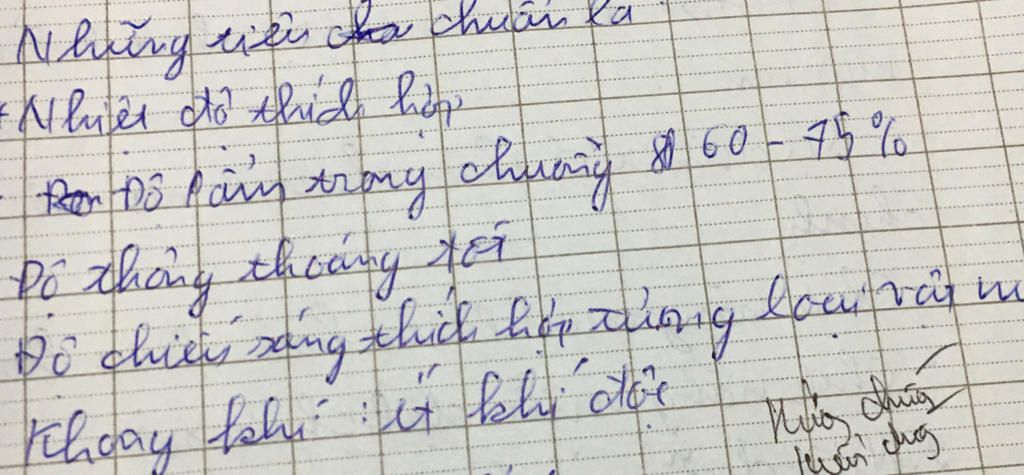 Những tiêu chuẩn là
+ Nhiệt độ thích hợp
Độ ẩm trong chuồng 60 - 75%
Độ thông thoáng tốt
Độ chiếu sáng thích hợp từng loại vật nu
Khoay khí : ít khí độc